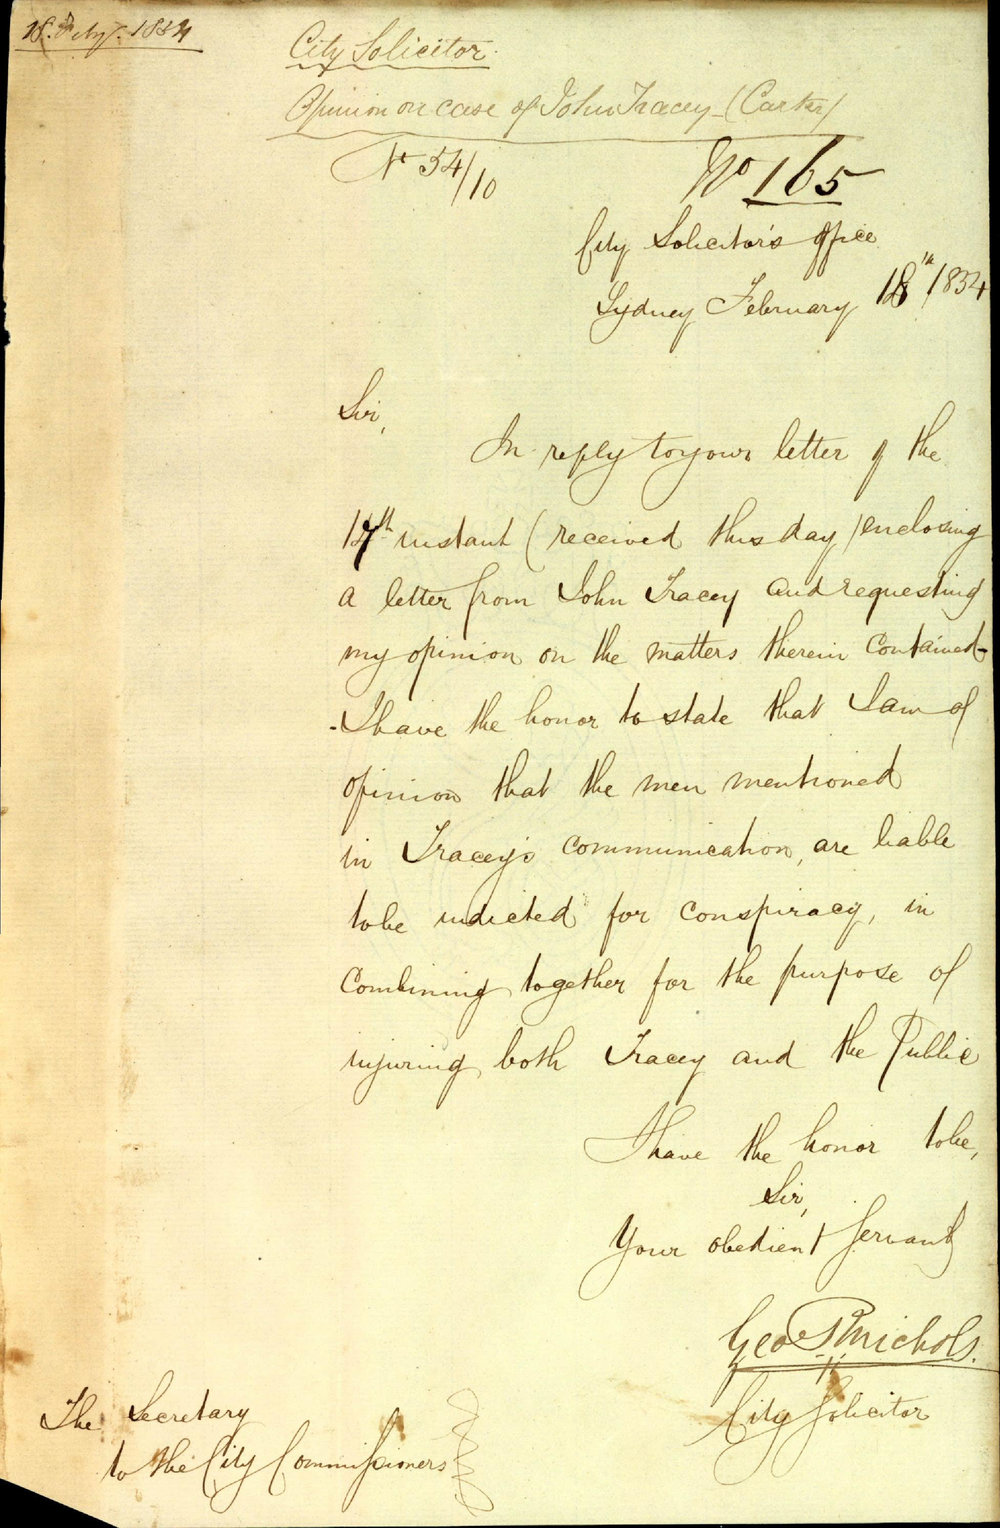 18. Feby. 1854
City Solicitor.
Opinion on case of John Tracey - (Carter)
No 54/10
No 165
City Solicitor's Office
Sydney February 18th/1854
Sir,
In reply to your letter of the
17th instant (received this day) enclosing
a letter from John Tracey and requesting
my opinion on the matters therein contained-
-I have the honor to state that I am of
opinion that the men mentioned
in Tracey's communication, are liable
to be indicted for conspiracy, in
combining together for the purpose of
injuring both Tracey and the Public
I have the honor to be,
Sir,
Your obedient Servant
Geo R Nichols.
City Solicitor
The Secretary
to the City Commissioners